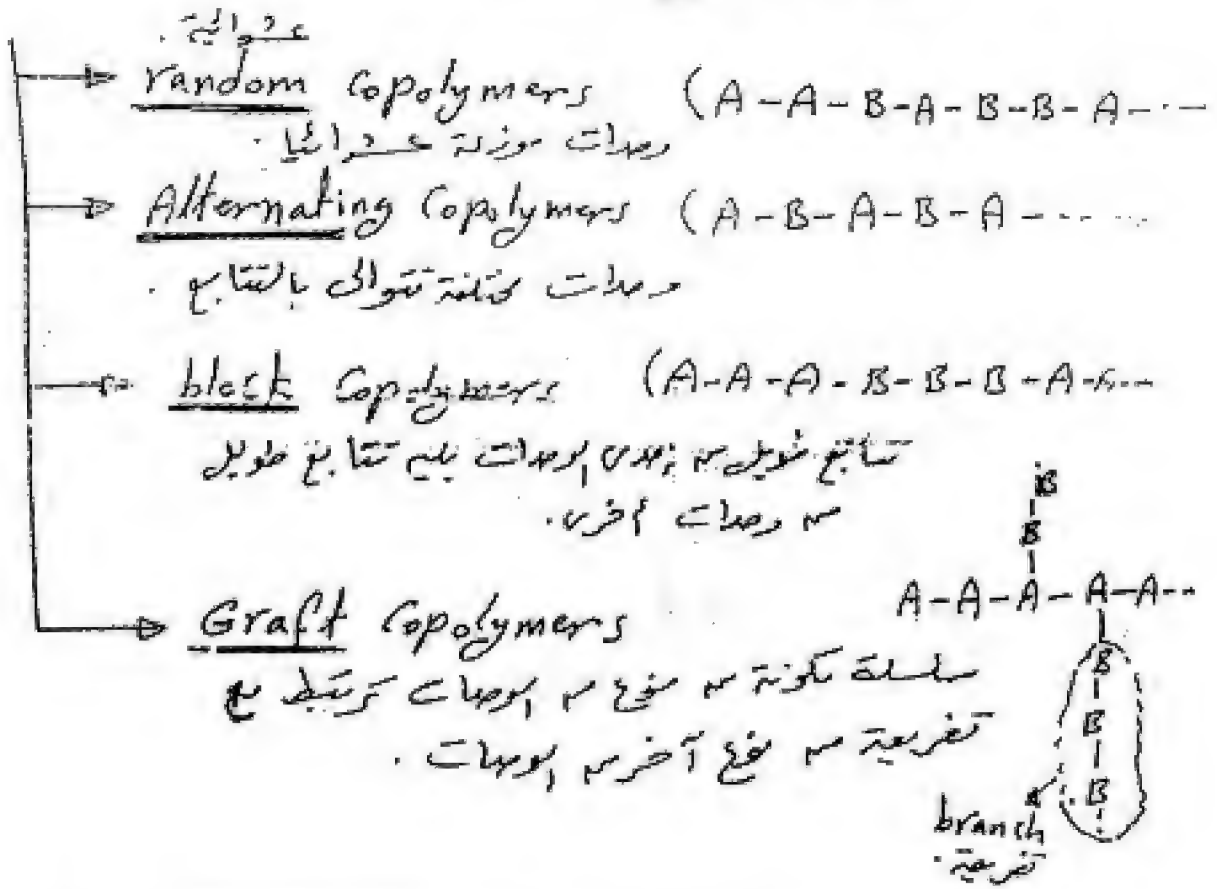 عشوائية .
random Copolymers (A-A-B-A-B-B-A-...
وحدات موزعة عشوائيا .
Alternating Copolymers (A-B-A-B-A-.....
وحدات مختلفة تتوالى بالتتابع .
block Copolymers (A-A-A-B-B-B-A-A--
تتابع طويل من إحدى الوحدات يليه تتابع طويل
من وحدات أخرى .
B
B
A-A-A-A-A--
Graft Copolymers
سلسلة مكونة من نوع من الوحدات ترتبط مع
تفريعة من نوع آخر من الوحدات .
B
B
B
branch
تفريعة .